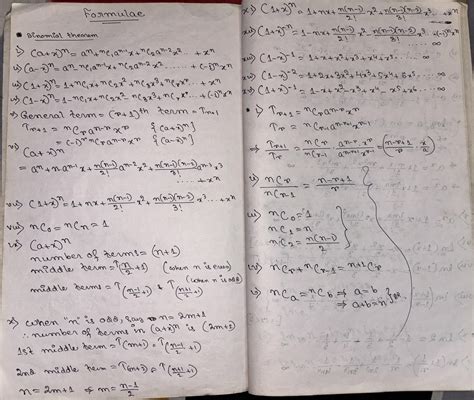 Formulae
• Binomial theorem
i) (a+x)ⁿ = aⁿ + ⁿC₁aⁿ⁻¹x + ⁿC₂aⁿ⁻²x² ... + xⁿ
ii) (a-x)ⁿ = aⁿ - ⁿC₁aⁿ⁻¹x + ⁿC₂aⁿ⁻²x² ...... + (-1)ⁿxⁿ
iii) (1+x)ⁿ = 1 + ⁿC₁x + ⁿC₂x² + ⁿC₃x³ + ⁿCᵣxʳ... + xⁿ
iv) (1-x)ⁿ = 1 - ⁿC₁x + ⁿC₂x² - ⁿC₃x³ + ⁿCᵣxʳ... + (-1)ⁿxⁿ
v) General term = (r+1)th term = Tᵣ₊₁
Tᵣ₊₁ = ⁿCᵣaⁿ⁻ʳxʳ {(a+x)ⁿ}
= (-1)ʳ ⁿCᵣaⁿ⁻ʳxʳ {(a-x)ⁿ}
vi) (a+x)ⁿ =
aⁿ + naⁿ⁻¹x + n(n-1)/2! aⁿ⁻²x² + n(n-1)(n-2)/3! aⁿ⁻³x³
...... + xⁿ
vii) (1+x)ⁿ = 1 + nx + n(n-1)/2! x² + n(n-1)(n-2)/3! x³ ... + xⁿ
viii) ⁿC₀ = ⁿCₙ = 1
ix) (a+x)ⁿ
number of terms = (n+1)
middle term = T(n/2 + 1) (when n is even)
middle terms = T((n+1)/2) & T((n+1)/2 + 1) (when n is odd)
x) when "n" is odd, say n = 2m+1
∴ number of terms in (a+x)ⁿ is (2m+2)
1st middle term = T(m+1), T((n+1)/2)
2nd middle term = T(m+2) = T((n+1)/2 + 1)
n = 2m+1 ⇒ m = (n-1)/2
(1+x)ⁿ = 1 + nx + n(n-1)/2! x² + n(n-1)(n-2)/3! x³
(1-x)⁻¹ = 1 + x + x² + x³ + x⁴ ...... ∞
(1-x)⁻² = 1 + 2x + 3x² + 4x³ + 5x⁴ + 6x⁵ ... ∞
(1+x)⁻¹ = 1 - x + x² - x³ + x⁴ - x⁵ + x⁶ ...... ∞
i) Tᵣ₊₁ = ⁿCᵣaⁿ⁻ʳxʳ
Tᵣ = ⁿCᵣ₋₁aⁿ⁻ʳ⁺¹xʳ⁻¹
⇒ Tᵣ₊₁/Tᵣ = ⁿCᵣ/ⁿCᵣ₋₁ aⁿ⁻ʳxʳ/aⁿ⁻ʳ⁺¹xʳ⁻¹ = (n-r+1)/r · x/a
ii) ⁿCᵣ/ⁿCᵣ₋₁ = (n-r+1)/r
iii) ⁿC₀ = 1
ⁿC₁ = n
ⁿC₂ = n(n-1)/2
iv) ⁿCᵣ + ⁿCᵣ₋₁ = ⁿ⁺¹Cᵣ
v) ⁿCₐ = ⁿC_b ⇒ a = b
⇒ a+b = n } or